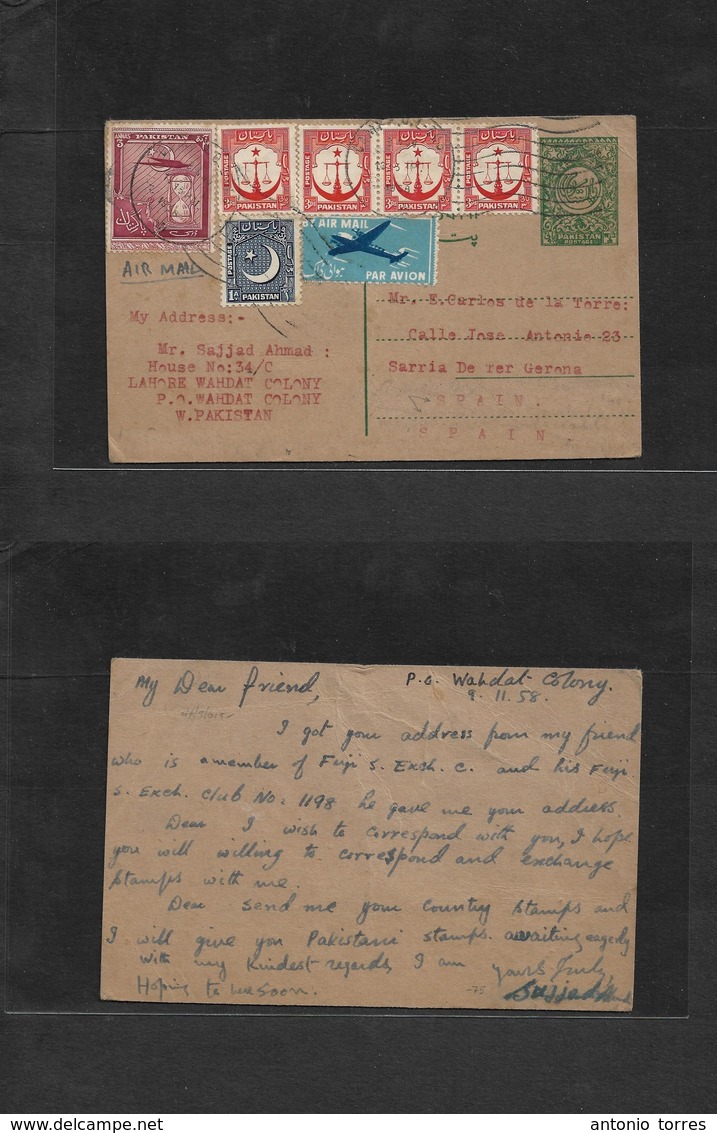 ANNAS 3 PAKISTAN
POSTAGE پاکستان 3 PAKISTAN
POSTAGE پاکستان 3 PAKISTAN
POSTAGE پاکستان 3 PAKISTAN
POSTAGE پاکستان 3 PAKISTAN
PAKISTAN
POSTAGE
POSTAGE پاکستان 1A PAKISTAN
BY AIR MAIL
ہوائی ڈاک
PAR AVION
AIR MAIL
My Address:-
Mr. Sajjad Ahmad :
House No:34/C
LAHORE WAHDAT COLONY
P.O. WAHDAT COLONY
W.PAKISTAN
Mr. E.Carlos de la Torre:
Calle Jose Antonio 23
Sarria De Ter Gerona
SPAIN.
SPAIN.
P.O. Wahdat Colony.
9.11.58.
My Dear friend,
I got your address from my friend
who is a member of Fuji S. Exch. C. and his Fuji
S. Exch. Club No: 1198 he gave me your address.
Dear I wish to correspond with you, I hope
you will willing to correspond and exchange
stamps with me.
Dear send me your country stamps and
I will give you Pakistani stamps. awaiting eagerly
With my Kindest regards, I am yours Truly,
Hoping to soon.
-75
Sajjad Ahmad
antonio torres